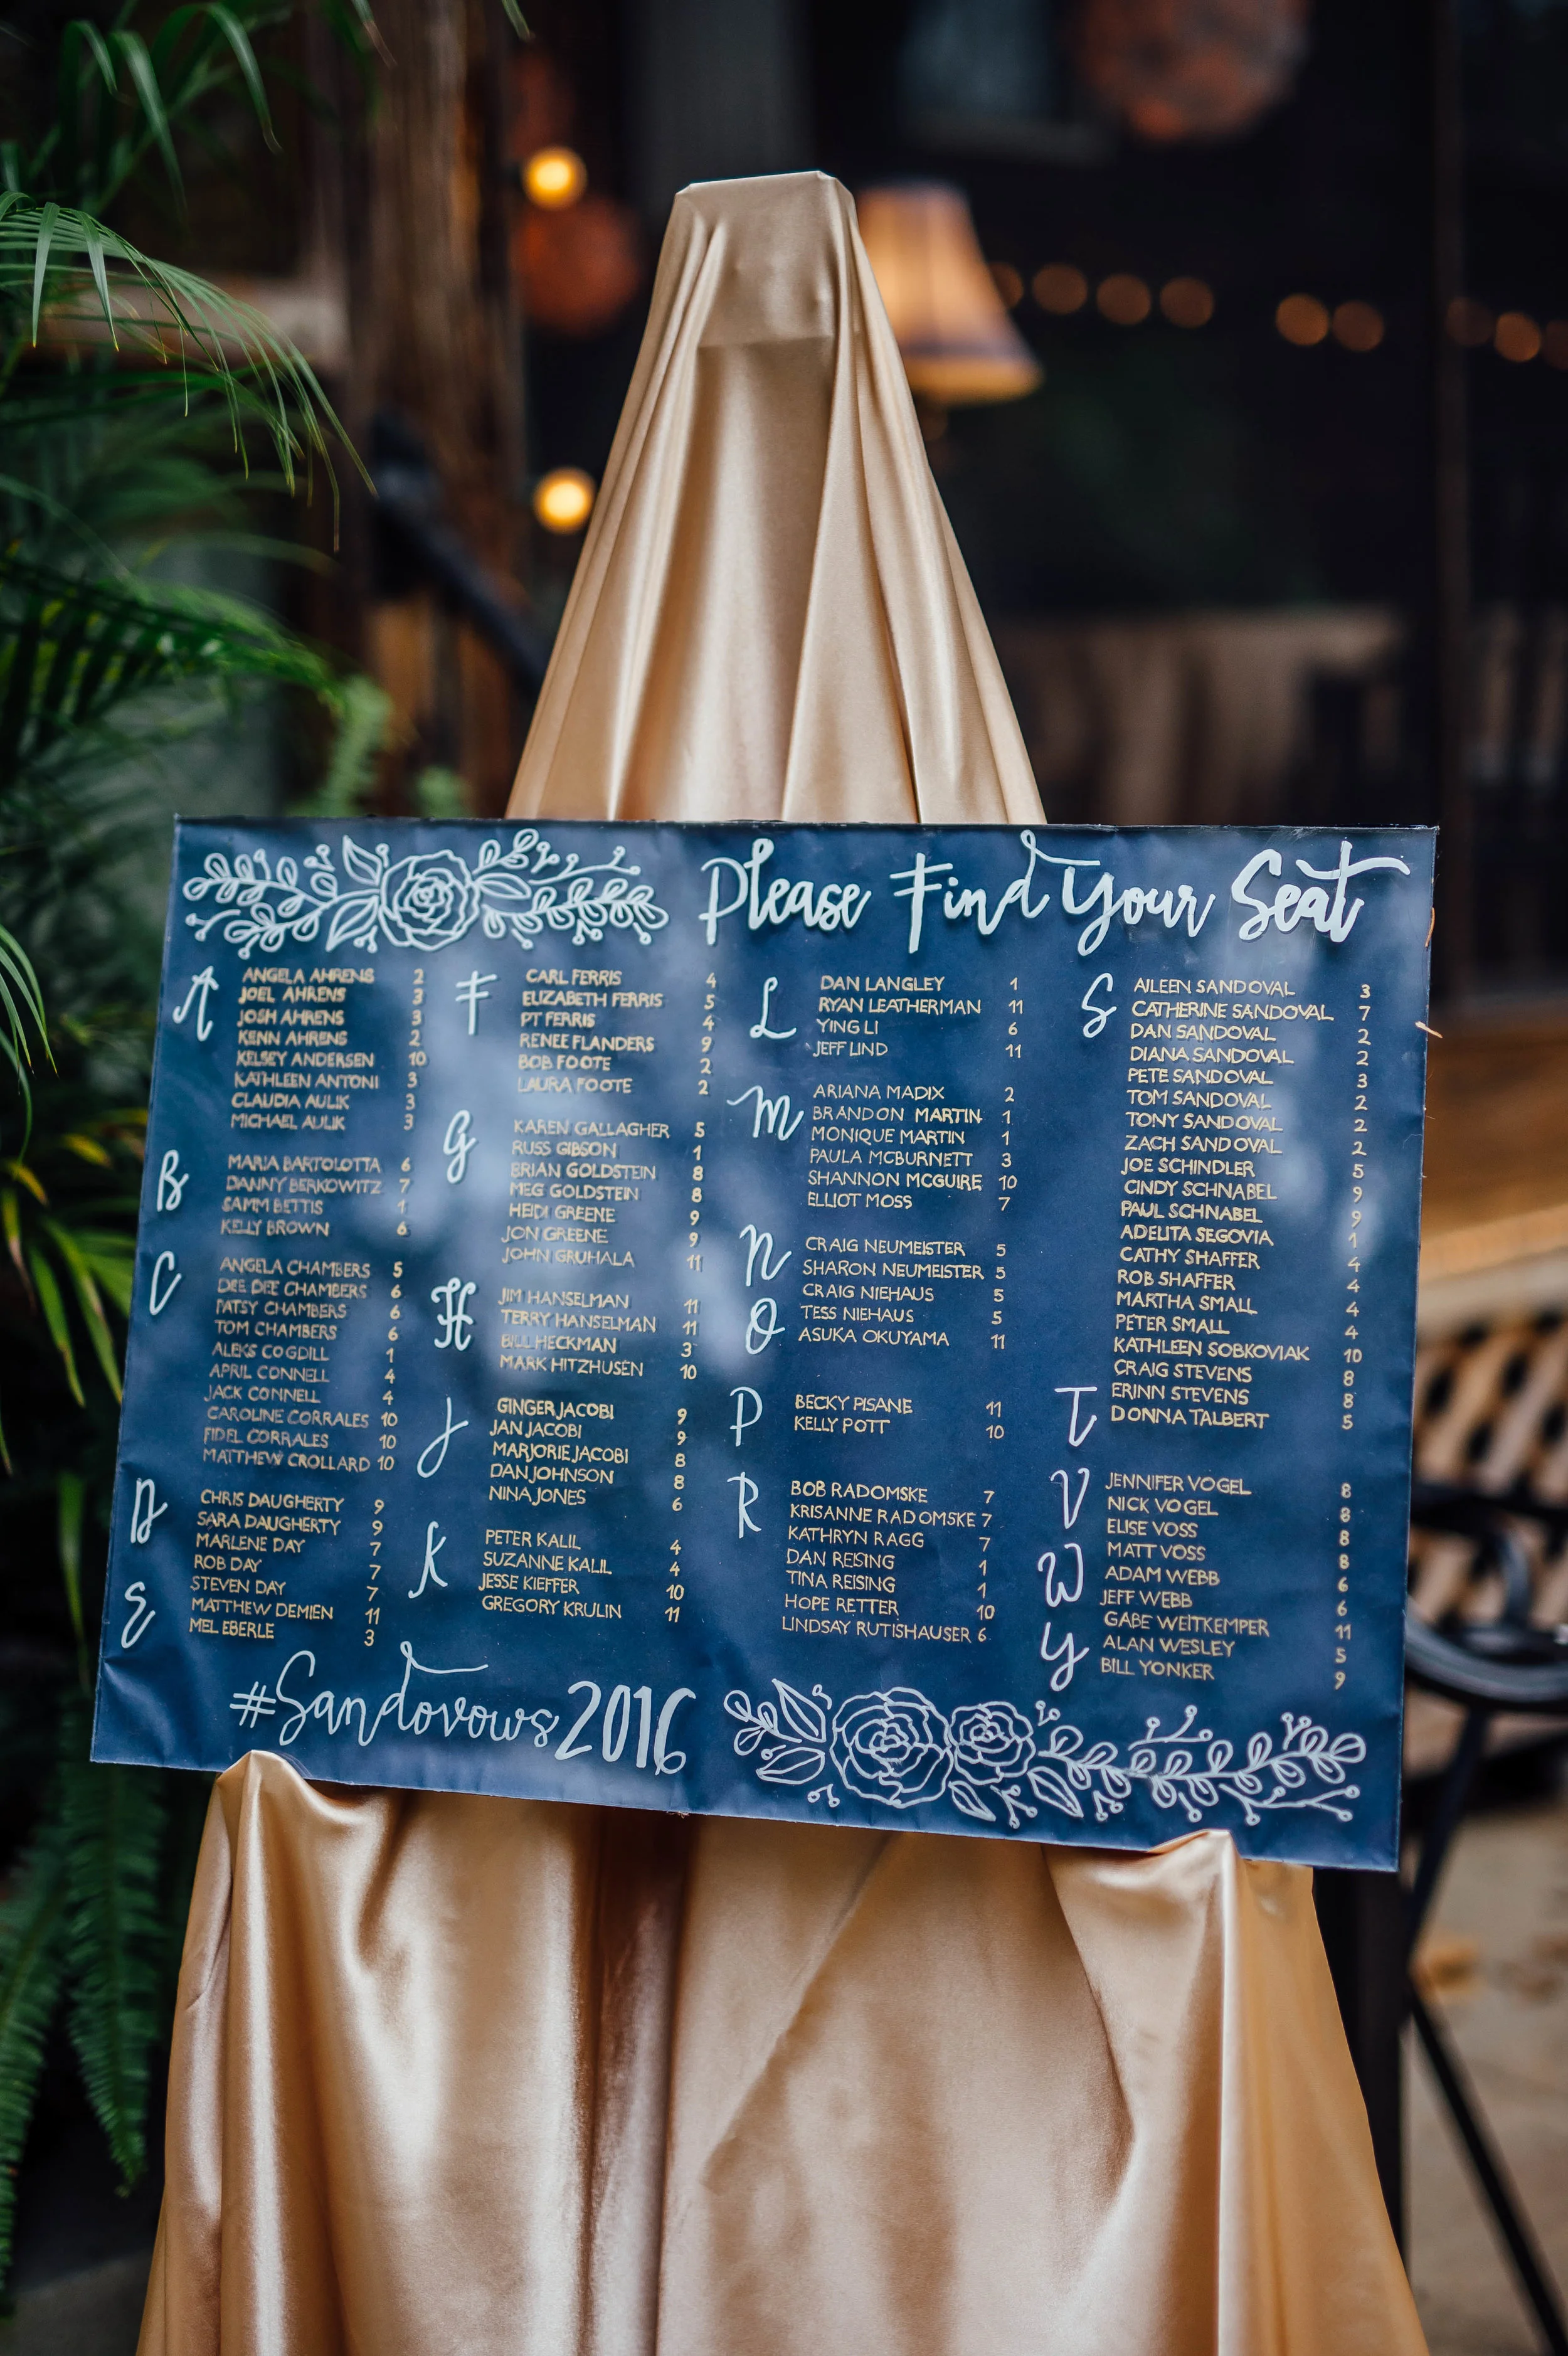 Please Find Your Seat
A
ANGELA AHRENS 2
JOEL AHRENS 3
JOSH AHRENS 3
KENN AHRENS 2
KELSEY ANDERSEN 10
KATHLEEN ANTONI 3
CLAUDIA AULIK 3
MICHAEL AULIK 3
B
MARIA BARTOLOTTA 6
DANNY BERKOWITZ 7
SAMM BETTIS 1
KELLY BROWN 6
C
ANGELA CHAMBERS 5
DEE DEE CHAMBERS 6
PATSY CHAMBERS 6
TOM CHAMBERS 6
ALEKS COGDILL 1
APRIL CONNELL 4
JACK CONNELL 4
CAROLINE CORRALES 10
FIDEL CORRALES 10
MATTHEW CROLLARD 10
D
CHRIS DAUGHERTY 9
SARA DAUGHERTY 9
MARLENE DAY 7
ROB DAY 7
STEVEN DAY 7
MATTHEW DEMIEN 11
E
MEL EBERLE 3
F
CARL FERRIS 4
ELIZABETH FERRIS 5
PT FERRIS 4
RENEE FLANDERS 9
BOB FOOTE 2
LAURA FOOTE 2
G
KAREN GALLAGHER 5
RUSS GIBSON 1
BRIAN GOLDSTEIN 8
MEG GOLDSTEIN 8
HEIDI GREENE 9
JON GREENE 9
JOHN GRUHALA 11
H
JIM HANSELMAN 11
TERRY HANSELMAN 11
BILL HECKMAN 3
MARK HITZHUSEN 10
J
GINGER JACOBI 9
JAN JACOBI 9
MARJORIE JACOBI 8
DAN JOHNSON 8
NINA JONES 6
K
PETER KALIL 4
SUZANNE KALIL 4
JESSE KIEFFER 10
GREGORY KRULIN 11
L
DAN LANGLEY 1
RYAN LEATHERMAN 11
YING LI 6
JEFF LIND 11
M
ARIANA MADIX 2
BRANDON MARTIN 1
MONIQUE MARTIN 1
PAULA MCBURNETT 3
SHANNON MCGUIRE 10
ELLIOT MOSS 7
N
CRAIG NEUMEISTER 5
SHARON NEUMEISTER 5
CRAIG NIEHAUS 5
TESS NIEHAUS 5
O
ASUKA OKUYAMA 11
P
BECKY PISANE 11
KELLY POTT 10
R
BOB RADOMSKE 7
KRISANNE RADOMSKE 7
KATHRYN RAGG 7
DAN REISING 1
TINA REISING 1
HOPE RETTER 10
LINDSAY RUTISHAUSER 6
S
AILEEN SANDOVAL 3
CATHERINE SANDOVAL 7
DAN SANDOVAL 2
DIANA SANDOVAL 2
PETE SANDOVAL 3
TOM SANDOVAL 2
TONY SANDOVAL 2
ZACH SANDOVAL 2
JOE SCHINDLER 5
CINDY SCHNABEL 9
PAUL SCHNABEL 9
ADELITA SEGOVIA 1
CATHY SHAFFER 4
ROB SHAFFER 4
MARTHA SMALL 4
PETER SMALL 4
KATHLEEN SOBKOVIAK 10
CRAIG STEVENS 8
ERINN STEVENS 8
T
DONNA TALBERT 5
V
JENNIFER VOGEL 8
NICK VOGEL 8
ELISE VOSS 8
MATT VOSS 8
W
ADAM WEBB 6
JEFF WEBB 6
GABE WEITKEMPER 11
ALAN WESLEY 5
Y
BILL YONKER 9
#Sandovows2016